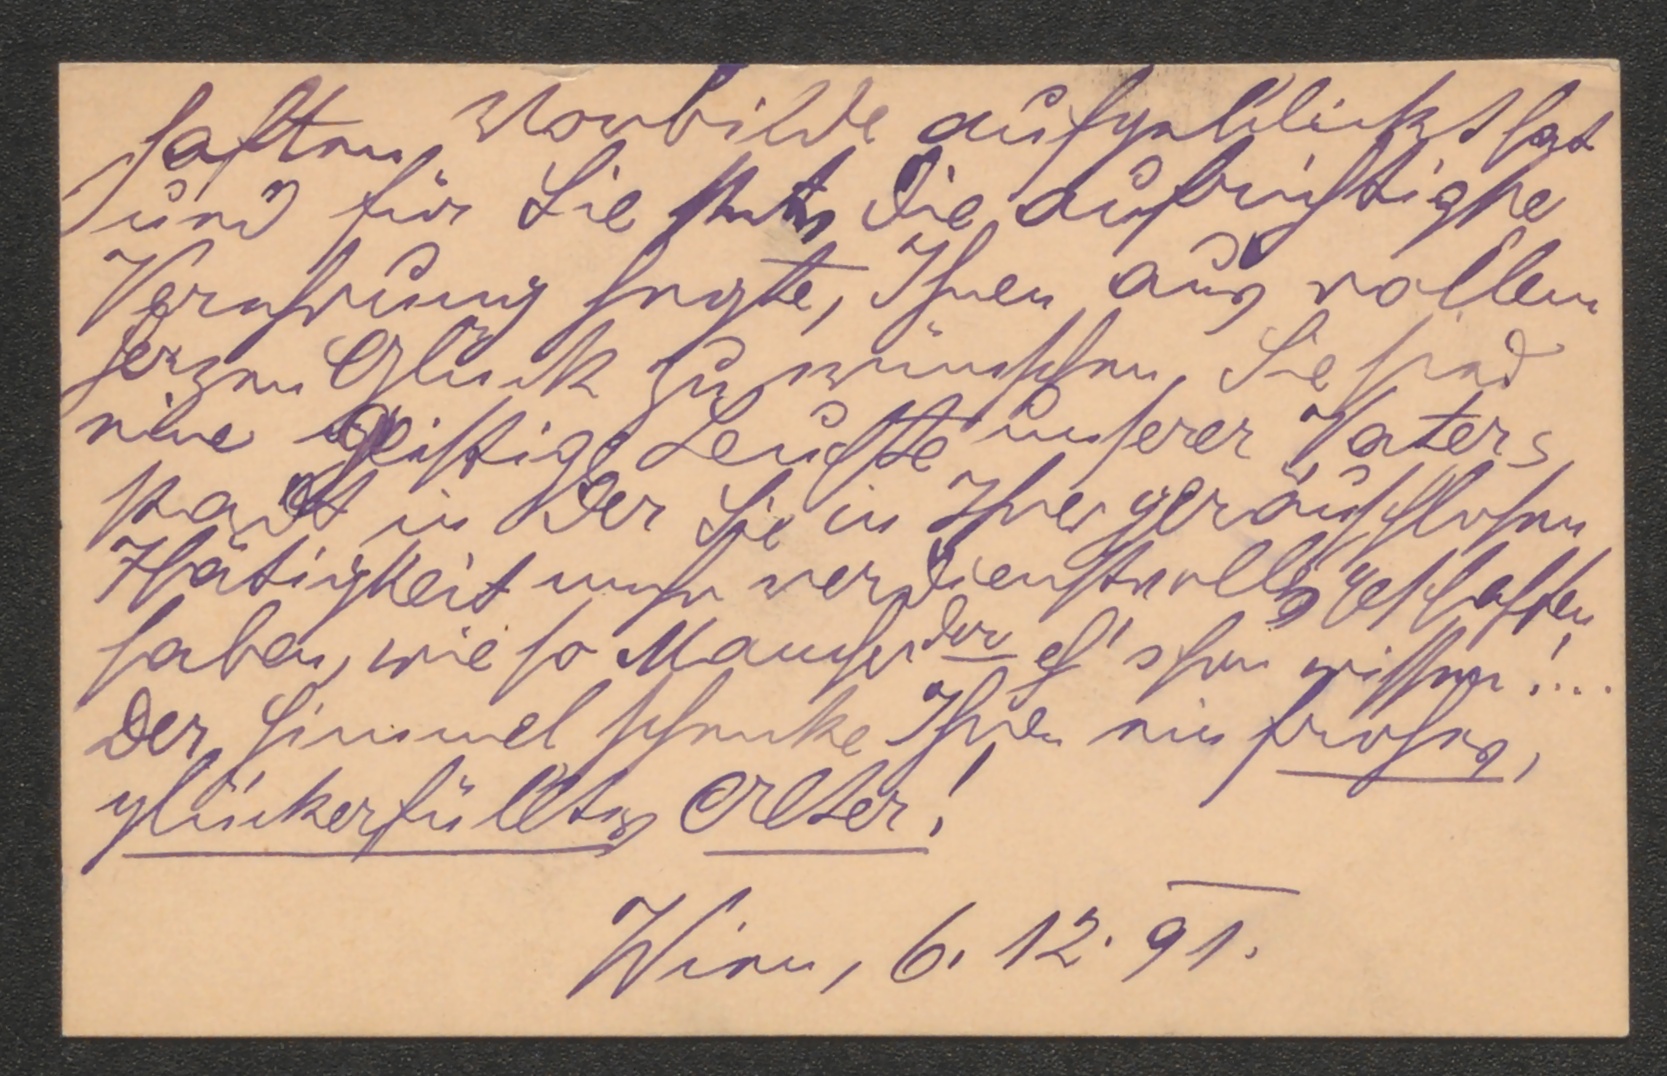 haften Vorbilde aufgeblickt hat
und für Sie stets die aufrichtigste
Verehrung hegte, Ihnen aus vollem
Herzen Glück zu wünschen. Sie sind
eine geistige Leuchte unserer Vater-
stadt in der Sie in Ihrer geräuschlosen
Thätigkeit mehr verdienstvolles geschaffen
haben, wie so Mancher der
Der Himmel schenke Ihnen ein frohes,
glückerfülltes Alter!
Wien, 6. 12. 91.